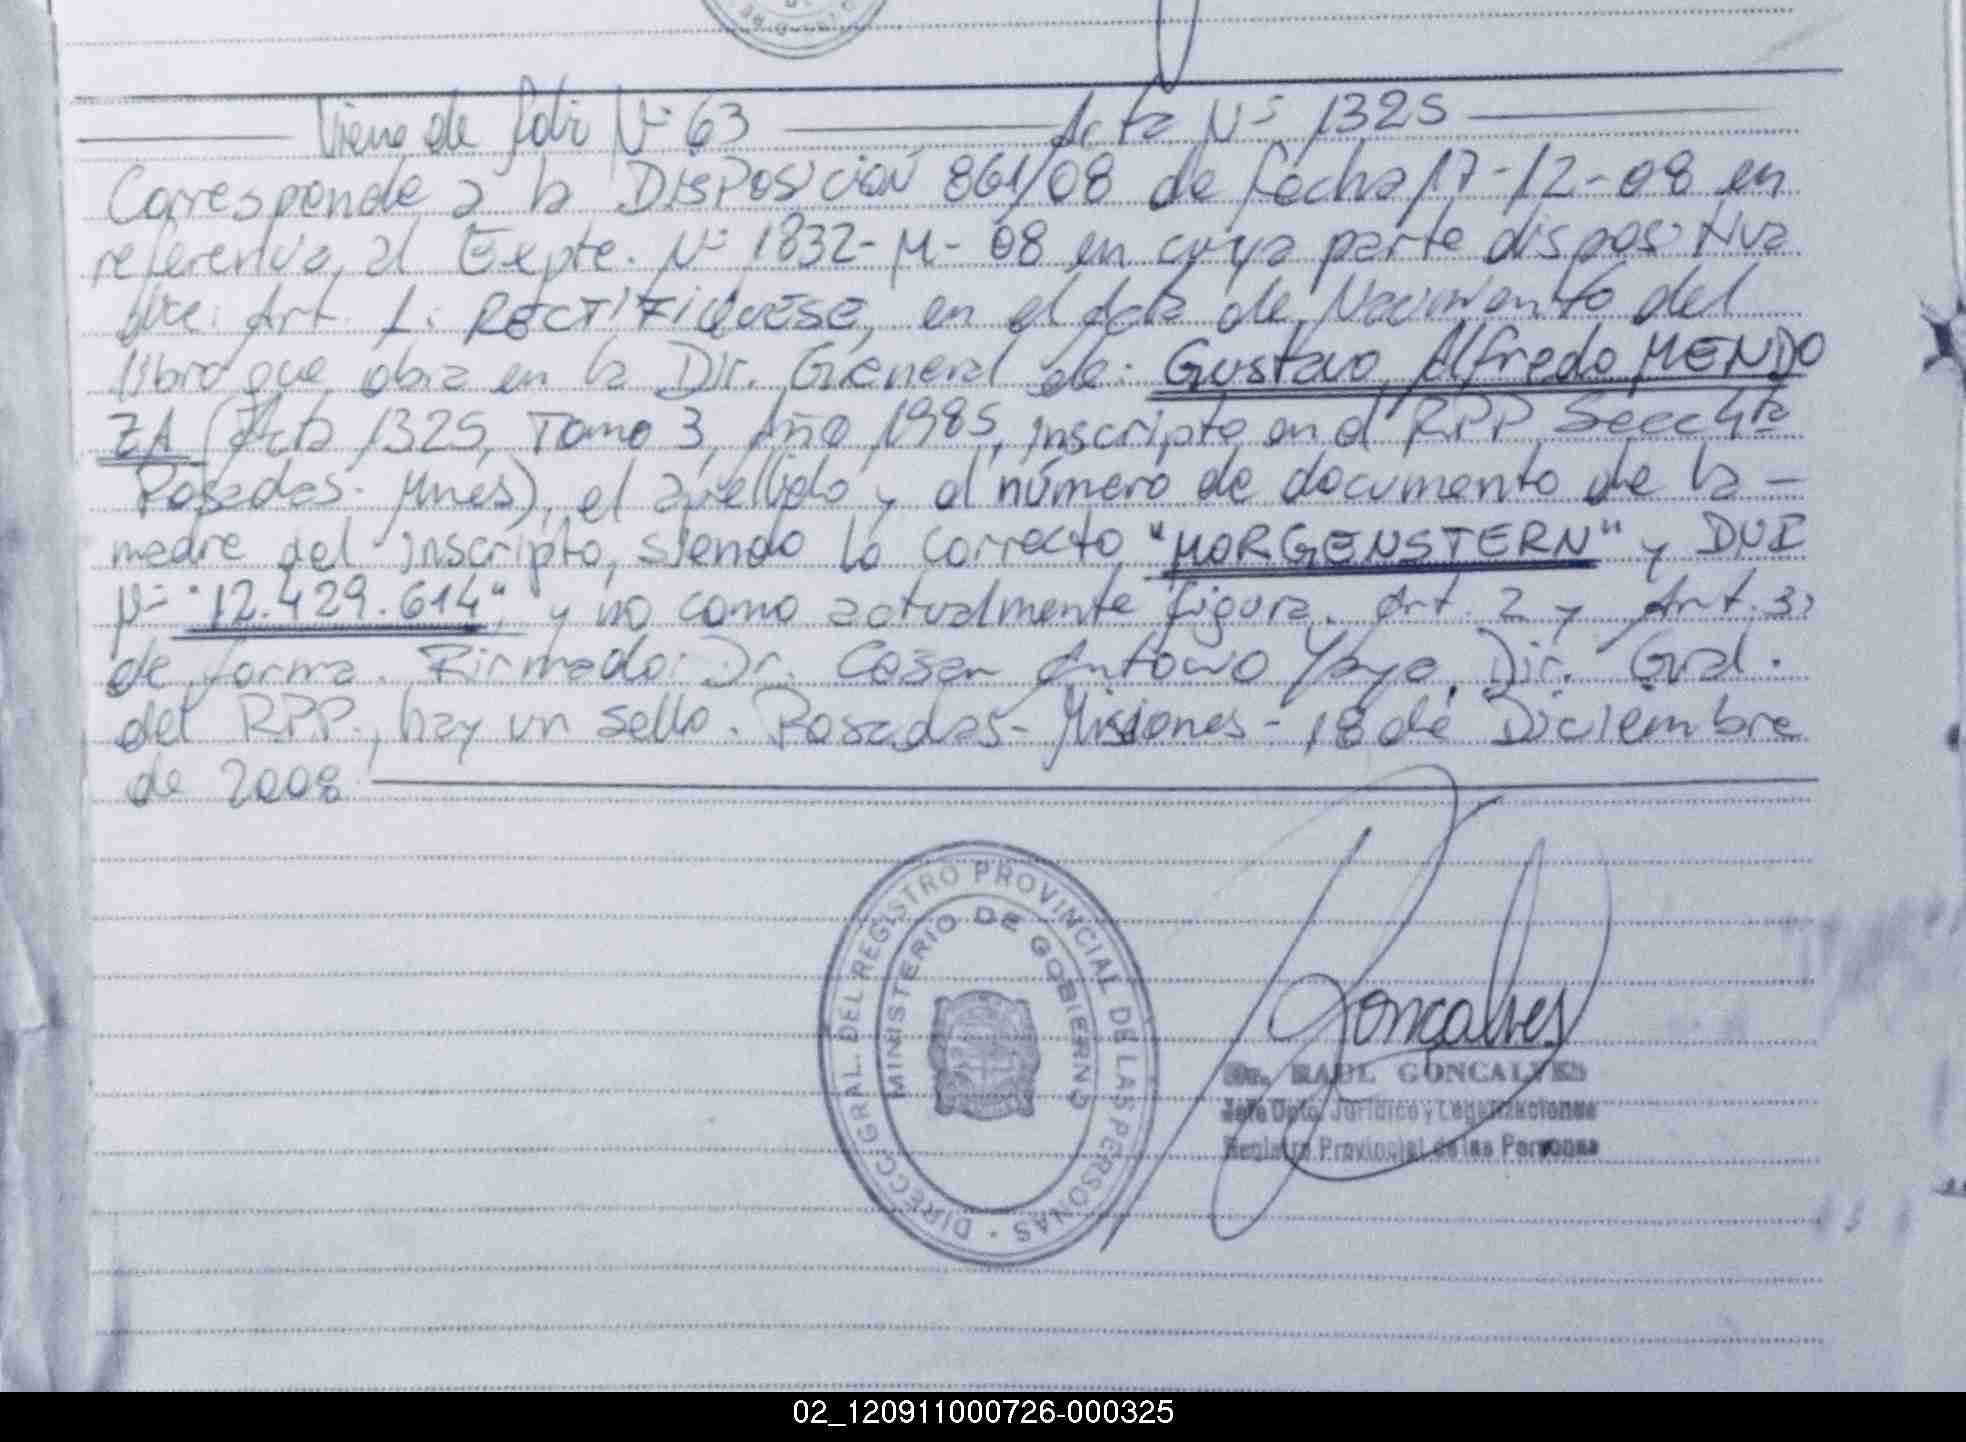 Viene de folio Nº 63 Acta Nº 1325
Corresponde a la DISPOSICIÓN 861/08 de fecha 17-12-08 en
referencia al Expte. Nº 1832-M-08 en cuya parte dispositiva
dice: Art. 1: RECTIFIQUESE, en el Acta de Nacimiento del
libro que obra en la Dir. General de: Gustavo Alfredo MENDO
ZA (Acta 1325, Tomo 3, Año 1985, inscripto en el RPP Secc 4ta
Posadas-Mnes), el apellido y el número de documento de la -
madre del inscripto, siendo lo correcto "MORGENSTERN" y DUI
Nº "12.429.614", y no como actualmente figura. Art. 2 y Art. 3:
de forma. Firmado: Dr. Cesar Antonio Yaya. Dir. Gral.
del RPP., hay un sello. Posadas-Misiones-18 de Diciembre
de 2008
DIRECC. GRAL. DEL REGISTRO PROVINCIAL DE LAS PERSONAS
MINISTERIO DE GOBIERNO
Goncalves
Dr. RAUL GONCALVES
Jefe Dpto. Jurídico y Legalizaciones
Registro Provincial de las Personas
02_120911000726-000325